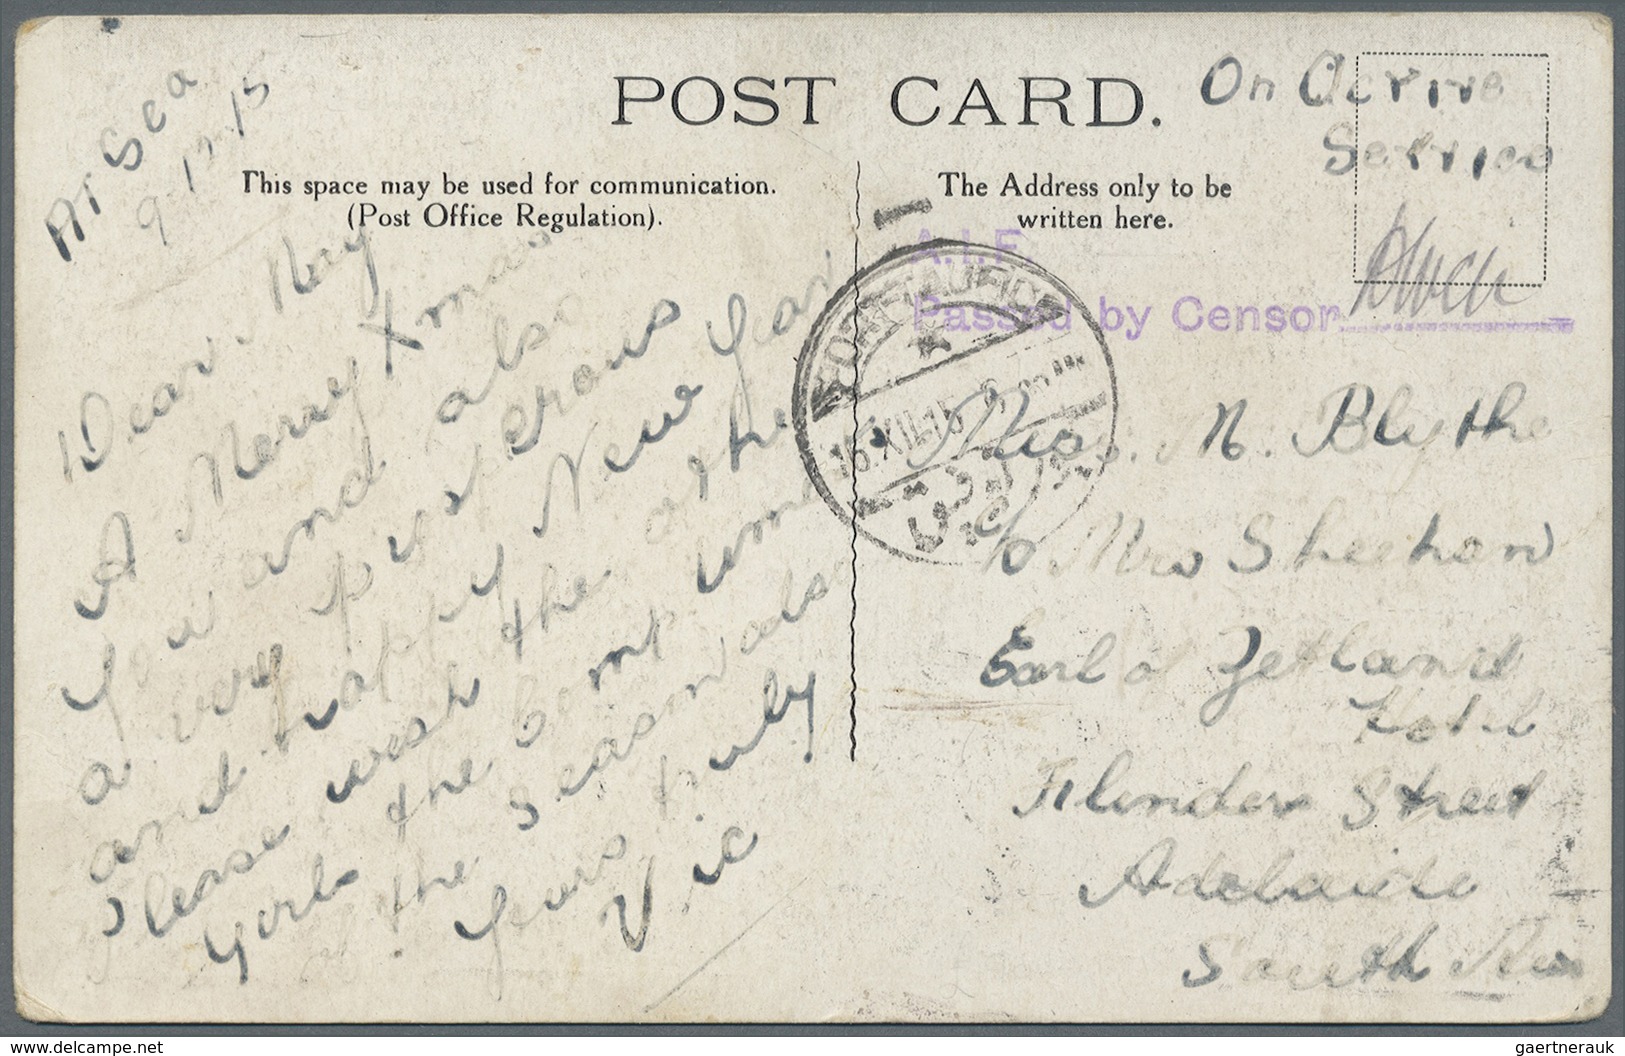 POST CARD.
This space may be used for communication.
(Post Office Regulation).
The Address only to be
written here.
At Sea
9-12-15
Dear May
A Merry Xmas
you and also
a very pros erous
and happy New Year
Please wish the other
Girls the comp
of the season also
Yours truly
Vic
On Active
Service
A.I.F.
Passed by Censor
PORT-TAUFIQ
16.XII.15
Miss. M. Blythe
c/o Mrs Sheehan
Earl of Zetland
Hotel
Flinders Street
Adelaide
South Aus
www.delcampe.net
gaertnerauk